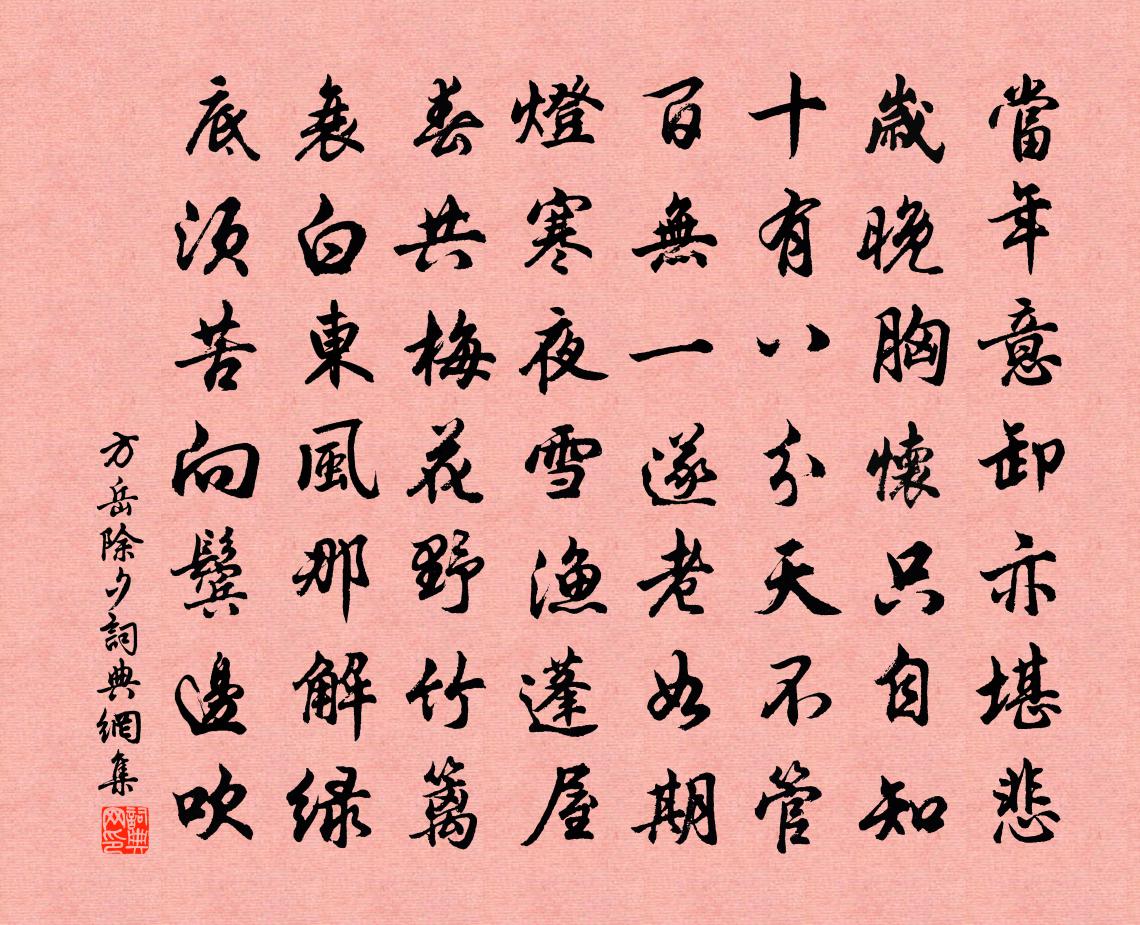 當年意卸亦堪悲
歲晚胸懷只自知
十有八分天不管
百無一遂老如期
燈寒夜雪漁蓬屋
春共梅花野竹篱
衰白東風那解绿
底須苦向鬓邊吹
方岳除夕詞典網集
詞典网印